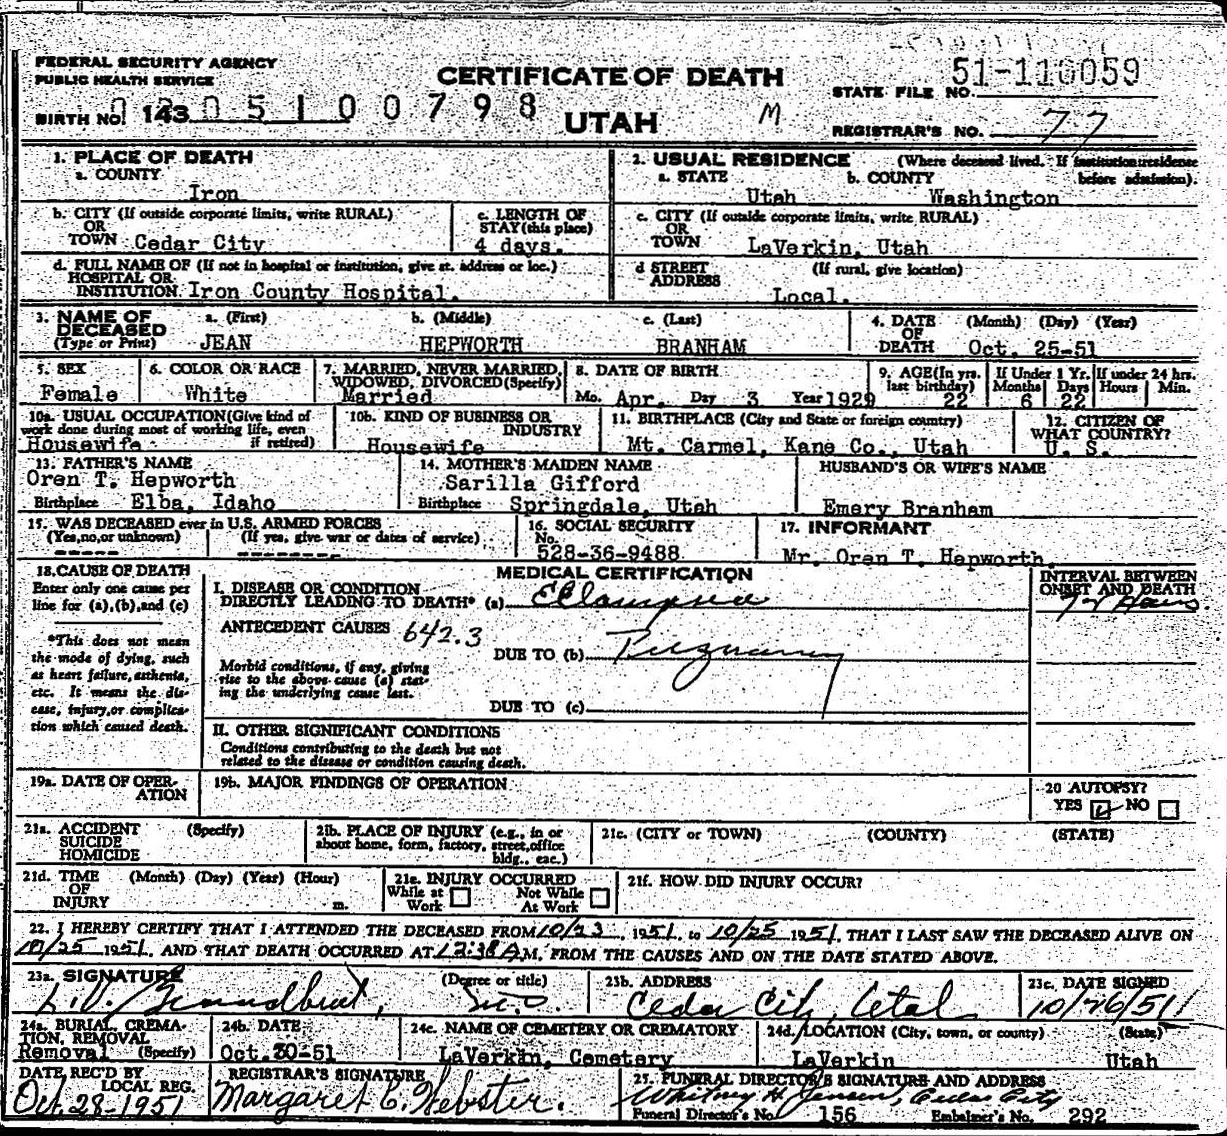 FEDERAL SECURITY AGENCY
PUBLIC HEALTH SERVICE
CERTIFICATE OF DEATH
51-110059
STATE FILE NO.
BIRTH NO. 143 0 5 1 0 0 7 9 8
UTAH
M
REGISTRAR'S NO. 77
1. PLACE OF DEATH
a. COUNTY
Iron
2. USUAL RESIDENCE (Where deceased lived. If institution: residence before admission).
a. STATE b. COUNTY
Utah Washington
b. CITY (If outside corporate limits, write RURAL)
OR
TOWN Cedar City
c. LENGTH OF
STAY (this place)
4 days.
c. CITY (If outside corporate limits, write RURAL)
OR
TOWN LaVerkin, Utah
d. FULL NAME OF (If not in hospital or institution, give st. address or loc.)
HOSPITAL OR
INSTITUTION Iron County Hospital.
d STREET (If rural, give location)
ADDRESS
Local.
3. NAME OF
DECEASED
(Type or Print)
a. (First) b. (Middle) c. (Last)
JEAN HEPWORTH BRANHAM
4. DATE (Month) (Day) (Year)
OF
DEATH Oct. 25-51
5. SEX
Female
6. COLOR OR RACE
White
7. MARRIED, NEVER MARRIED,
WIDOWED, DIVORCED (Specify)
Married
8. DATE OF BIRTH
Mo. Apr. Day 3 Year 1929
9. AGE (In yrs.
last birthday)
22
If Under 1 Yr.
Months Days
6 22
If under 24 hrs.
Hours Min.
10a. USUAL OCCUPATION (Give kind of
work done during most of working life, even
if retired)
Housewife
10b. KIND OF BUSINESS OR
INDUSTRY
Housewife
11. BIRTHPLACE (City and State or foreign country)
Mt. Carmel, Kane Co., Utah
12. CITIZEN OF
WHAT COUNTRY?
U. S.
13. FATHER'S NAME
Oren T. Hepworth
Birthplace Elba, Idaho
14. MOTHER'S MAIDEN NAME
Sarilla Gifford
Birthplace Springdale, Utah
HUSBAND'S OR WIFE'S NAME
Emery Branham
15. WAS DECEASED ever in U.S. ARMED FORCES
(Yes, no, or unknown) (If yes, give war or dates of service)
----- --------
16. SOCIAL SECURITY
No.
528-36-9488
17. INFORMANT
Mr. Oren T. Hepworth.
18. CAUSE OF DEATH
Enter only one cause per
line for (a), (b), and (c)
*This does not mean
the mode of dying, such
as heart failure, asthenia,
etc. It means the dis-
ease, injury, or complica-
tion which caused death.
MEDICAL CERTIFICATION
I. DISEASE OR CONDITION
DIRECTLY LEADING TO DEATH* (a) Eclampsia
INTERVAL BETWEEN
ONSET AND DEATH
72 Hours
ANTECEDENT CAUSES 642.3
DUE TO (b) Pregnancy
Morbid conditions, if any, giving
rise to the above cause (a) stat-
ing the underlying cause last.
DUE TO (c)
II. OTHER SIGNIFICANT CONDITIONS
Conditions contributing to the death but not
related to the disease or condition causing death.
19a. DATE OF OPER-
ATION
19b. MAJOR FINDINGS OF OPERATION
20 AUTOPSY?
YES NO
21a. ACCIDENT (Specify)
SUICIDE
HOMICIDE
21b. PLACE OF INJURY (e.g., in or
about home, form, factory, street, office
bldg., eac.)
21c. (CITY or TOWN) (COUNTY) (STATE)
21d. TIME (Month) (Day) (Year) (Hour)
OF
INJURY m.
21e. INJURY OCCURRED
While at Work Not While At Work
21f. HOW DID INJURY OCCUR?
22. I HEREBY CERTIFY THAT I ATTENDED THE DECEASED FROM 10/23, 1951, to 10/25 1951, THAT I LAST SAW THE DECEASED ALIVE ON
10/25 1951, AND THAT DEATH OCCURRED AT 12:38 A M, FROM THE CAUSES AND ON THE DATE STATED ABOVE.
23a. SIGNATURE (Degree or title)
M.D.
23b. ADDRESS
Cedar City, Utah
23c. DATE SIGNED
10/26/51
24a. BURIAL, CREMA-
TION, REMOVAL
Removal (Specify)
24b. DATE
Oct. 30-51
24c. NAME OF CEMETERY OR CREMATORY
LaVerkin, Cemetery
24d. LOCATION (City, town, or county) (State)
LaVerkin Utah
DATE REC'D BY
LOCAL REG.
Oct. 28-1951
REGISTRAR'S SIGNATURE
Margaret C. Webster.
25. FUNERAL DIRECTOR'S SIGNATURE AND ADDRESS
Whitney H. Jensen, Cedar City
Funeral Director's No. 156 Embalmer's No. 292